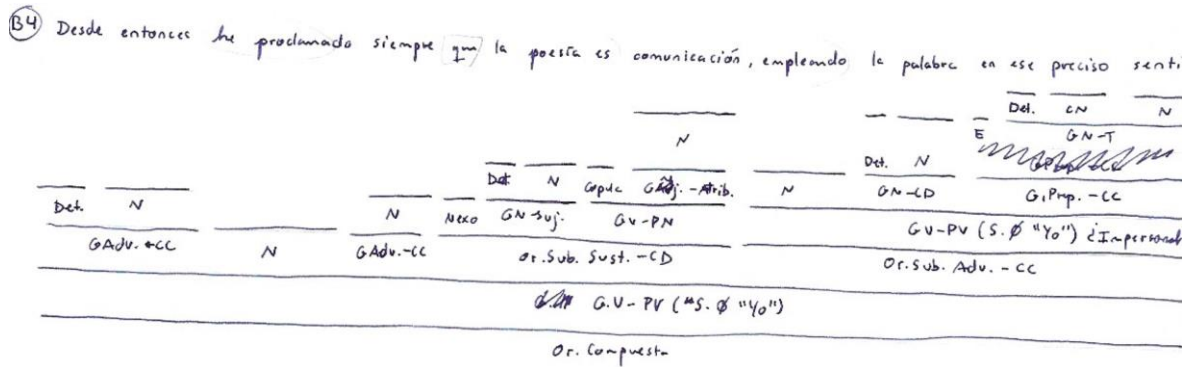 B4 Desde entonces he proclamado siempre que la poesía es comunicación, empleando la palabra en ese preciso senti
Det. CN N
N E GN-T
Det N Copula G. Adj. - Atrib. N Det. N
Det. N N Nexo GN-Suj. GV-PN GN-CD G.Prep. - CC
GAdv. - CC N GAdv. - CC Or. Sub. Sust. - CD GV-PV (S. Ø "Yo") ¿Impersonal
Or. Sub. Adv. - CC
G.V - PV (S. Ø "Yo")
Or. Compuesta